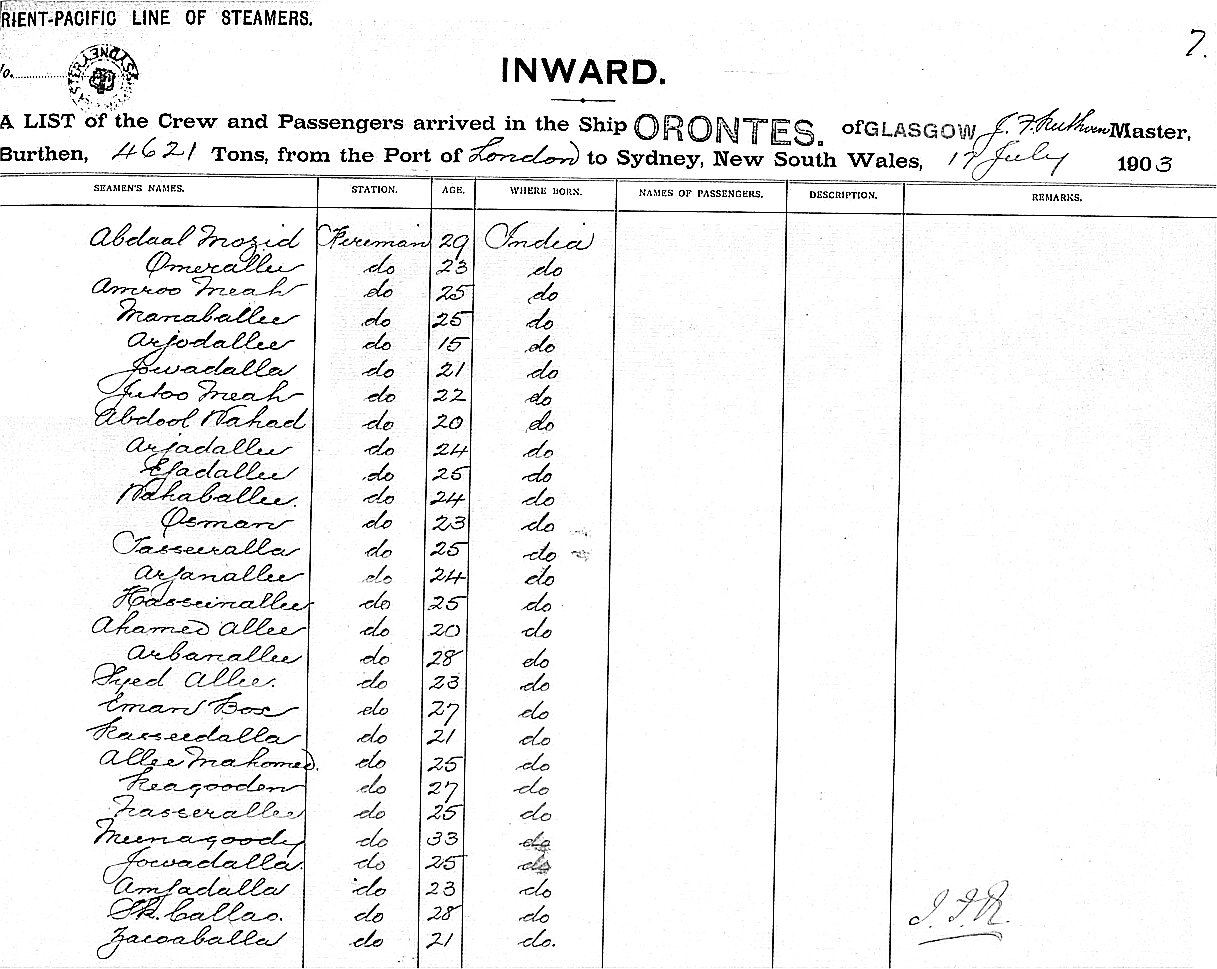 RIENT-PACIFIC LINE OF STEAMERS.
7.
No.
INWARD.
A LIST of the Crew and Passengers arrived in the Ship ORONTES. of GLASGOW J. F. Ruthven Master,
Burthen, 4621 Tons, from the Port of London to Sydney, New South Wales, 17 July 1903
SEAMEN'S NAMES. STATION. AGE. WHERE BORN. NAMES OF PASSENGERS. DESCRIPTION. REMARKS.
Abdaal Mozid Fireman 29 India
Omerallee do 23 do
Amroo Meah do 25 do
Manaballee do 25 do
Arjodallee do 15 do
Jowadalla do 21 do
Jutoo Meah do 22 do
Abdool Wahad do 20 do
Arjadallee do 24 do
Ejadallee do 25 do
Wahaballee. do 24 do
Osman do 23 do
Tasseeralla do 25 do
Arjanallee do 24 do
Hasseinallee do 25 do
Ahamed Allee do 20 do
Arbanallee do 28 do
Syed Allee. do 23 do
Eman Box do 27 do
Kasseedalla do 21 do
Allee Mahomed. do 25 do
Keagooden do 27 do
Nasserallee do 25 do
Meenagoody do 33 do
Jowadalla. do 25 do
Amjadalla do 23 do
Sk. Callao. do 28 do
Zacoaballa do 21 do.
J. F. R.